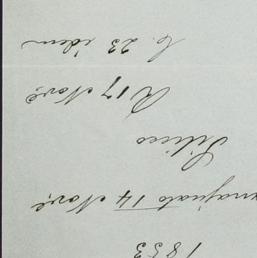 1853
najuato 14 Nov.e
Siliceo
R 17 Nov.e
C. 23 idem